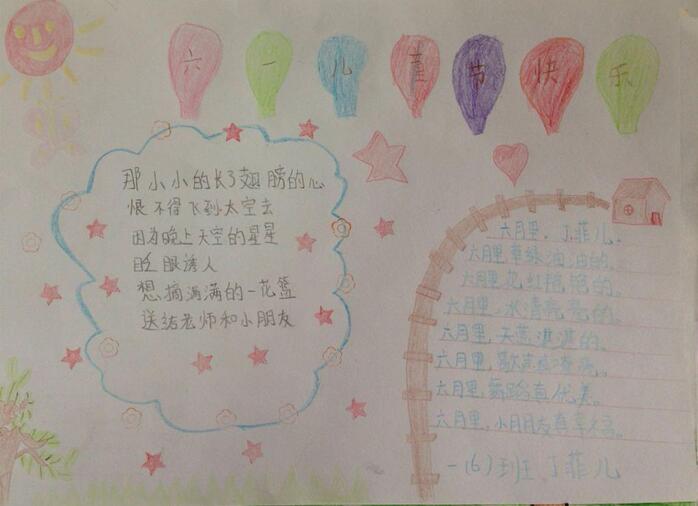 六一儿童节快乐
那小小的长了翅膀的心
恨不得飞到太空去
因为晚上天空的星星
眨眼诱人
想摘满满的一花篮
送给老师和小朋友
六月里,丁菲儿。
六月里草绿油油的。
六月里花红艳艳的。
六月里,水清亮亮的。
六月里,天蓝湛湛的。
六月里,歌声
六月里,舞蹈真优美。
六月里,小朋友真幸福。
一(6)班 丁菲儿